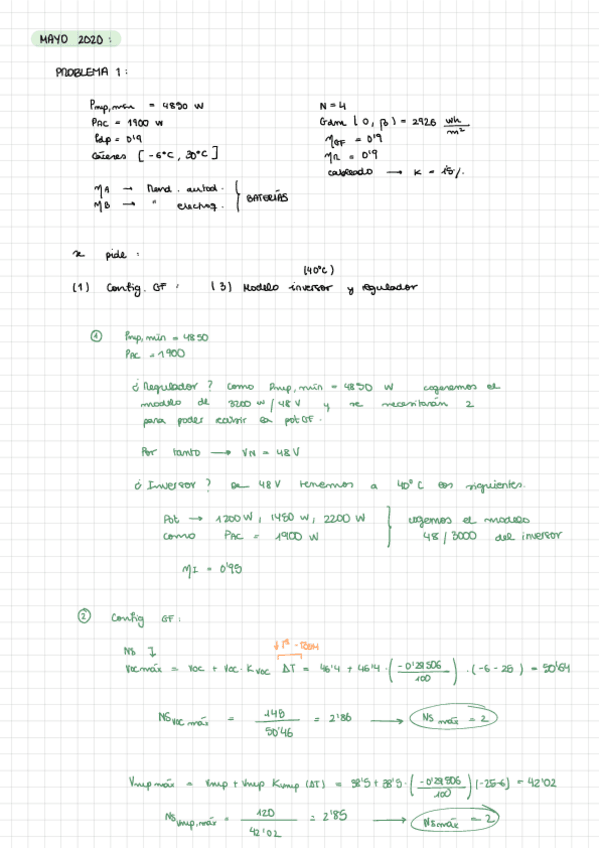 MAYO 2020:
PROBLEMA 1:
Pmp,mín = 4850 W
N = 4
PAC = 1900 W
Gdm (0, β) = 2926 Wh/m²
Fdp = 0'9
ηGF = 0'9
Cáceres [-6°C, 30°C]
ηR = 0'9
cableado → K = 15%
ηA → Rend. autod.
ηB → " electroq.
BATERÍAS
se pide:
(40°C)
(1) Config. GF: (3) Modelo inversor y regulador
① Pmp,mín = 4850
PAC = 1900
¿Regulador? Como Pmp,mín = 4850 W cogeremos el
modelo de 3200 W/48 V y se necesitarán 2
para poder cubrir la pot GF.
Por tanto → VN = 48 V
¿Inversor? De 48V tenemos a 40°C los siguientes.
Pot → 1200 W, 1480 W, 2200 W
cogemos el modelo
como PAC = 1900 W
48/3000 del inversor
ηI = 0'95
② Config GF:
Ns ↓
↓Tª
Vocmáx = Voc + Voc · KVoc ΔT = 46'4 + 46'4 · (-0'29506/100) · (-6 - 25) = 50'64
NsVoc máx = 148/50'46 = 2'86 → Ns máx = 2
Vmpmáx = Vmp + Vmp KVmp (ΔT) = 38'5 + 38'5 · (-0'29506/100)(-25-6) = 42'02
NsVmp,máx = 120/42'02 = 2'85 → Nsmáx = 2